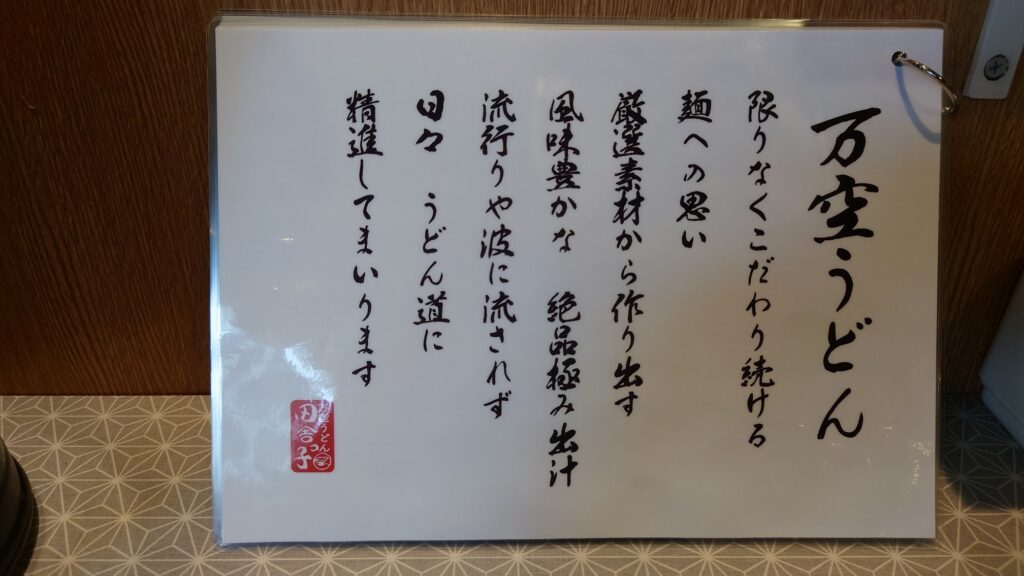 万空うどん
限りなくこだわり続ける
麺への思い
厳選素材から作り出す
風味豊かな 絶品極み出汁
流行りや波に流されず
日々 うどん道に
精進してまいります
うどん
田舎っ子